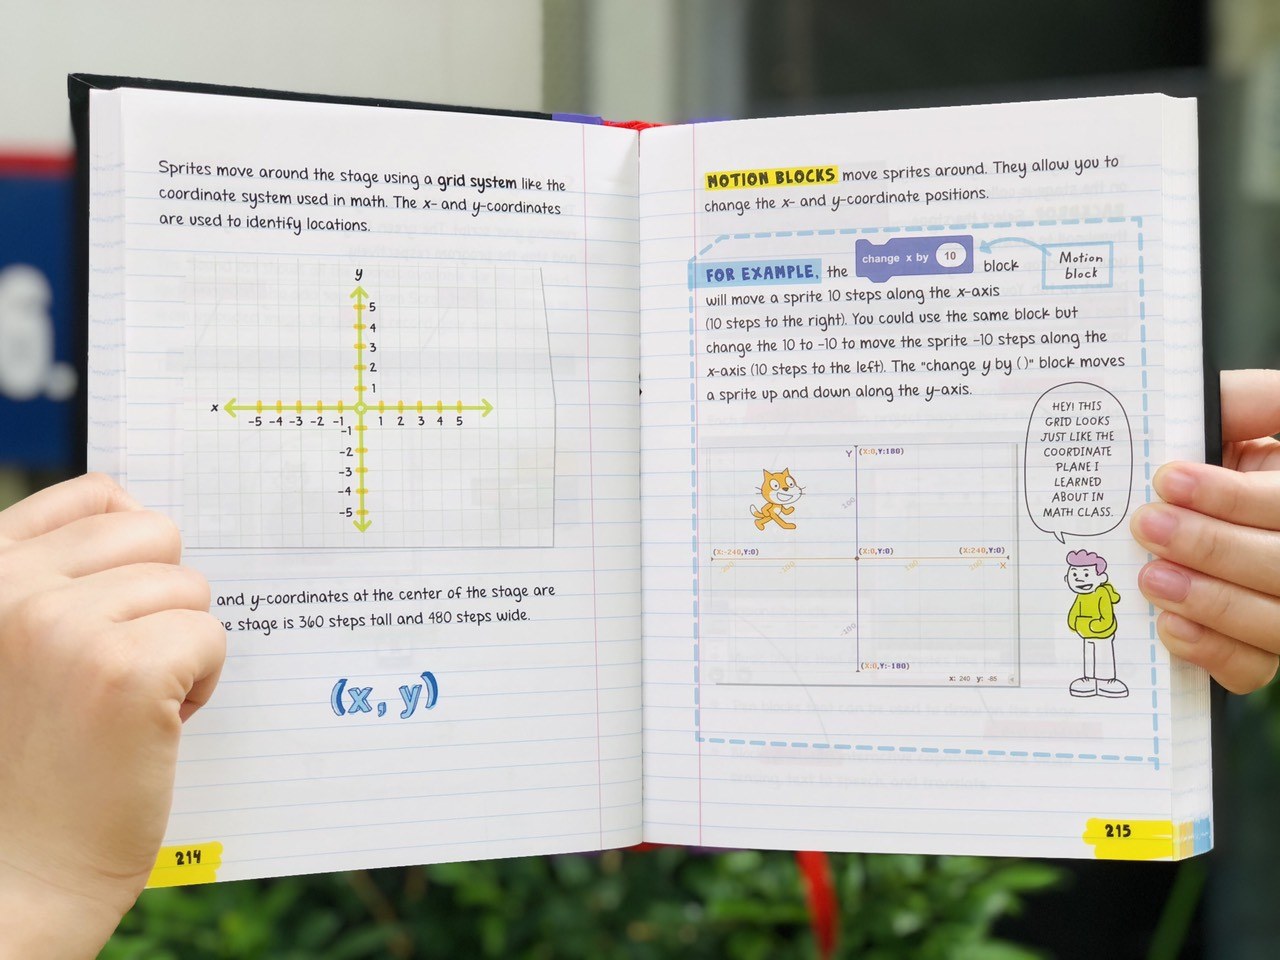 Sprites move around the stage using a grid system like the
coordinate system used in math. The x- and y-coordinates
are used to identify locations.
y
5
4
3
2
1
x
-5 -4 -3 -2 -1 1 2 3 4 5
-1
-2
-3
-4
-5
and y-coordinates at the center of the stage are
stage is 360 steps tall and 480 steps wide.
(x, y)
214
MOTION BLOCKS move sprites around. They allow you to
change the x- and y-coordinate positions.
FOR EXAMPLE, the change x by 10 block
Motion
block
will move a sprite 10 steps along the x-axis
(10 steps to the right). You could use the same block but
change the 10 to -10 to move the sprite -10 steps along the
x-axis (10 steps to the left). The "change y by ( )" block moves
a sprite up and down along the y-axis.
HEY! THIS
GRID LOOKS
JUST LIKE THE
COORDINATE
PLANE I
LEARNED
ABOUT IN
MATH CLASS.
Y (X:0,Y:180)
100
(X:-240,Y:0) (X:0,Y:0) (X:240,Y:0)
-200 -100 100 X
-100
(X:0,Y:-180)
x: 240 y: -65
215
6.